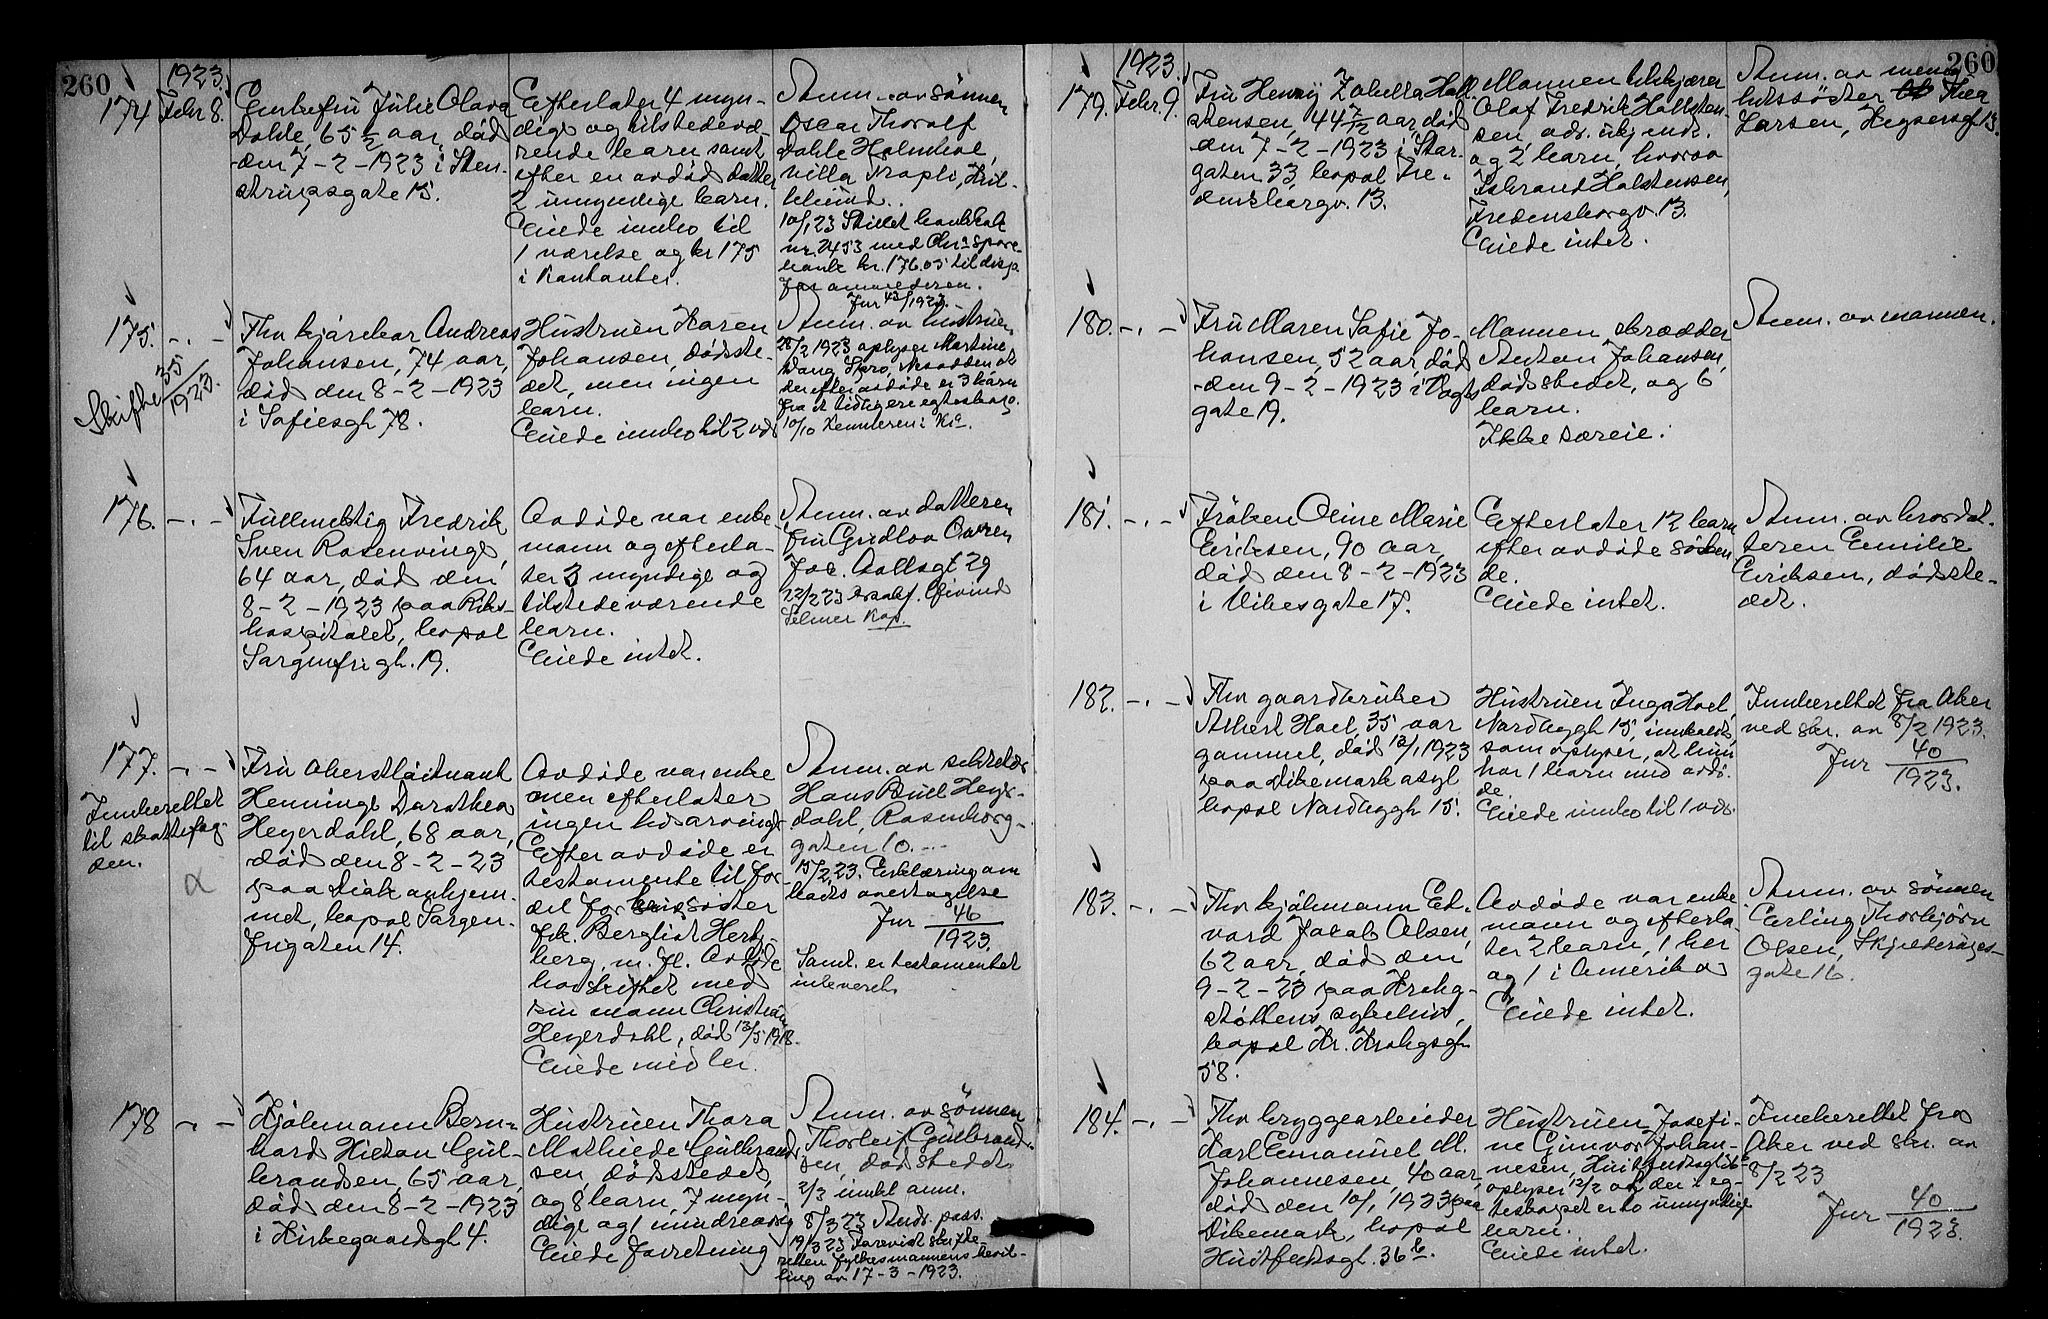 260
1923.
174 Febr 8.
Enkefru Julie Olava
Dahle, 65 1/2 aar, død
den 7-2-1923 i Sten-
strupsgate 15.
Efterlater 4 myn-
dige og tilstedevæ-
rende barn samt
efter en avdød datter
2 umyndige barn.
Eiede innbo til
1 værelse og kr 175
i kontanter.
Anm. av sønnen
Oscar Thorolf
Dahle Holmboe,
villa
10/1 23 Stillet bankbok
nr. 7453 med Chra spare-
bank kr. 176.05 til disp.
for anmelderen.
Jur 43/1923.
175. -.-
Skifte 35/1923.
Fhv kjørekar Andreas
Johansen, 74 aar,
død den 8-2-1923
i Sofiesgt 78.
Hustruen Karen
Johansen, dødste-
det, men ingen
barn.
Eiede innbo til 2 vær
Anm. av hustruen
28/2 1923 oplyser Martine
Nesodden at
der efter avdøde er 3 barn
fra et tidligere egteskap.
10/10
176. -.-
Fullmektig Fredrik
Sven Rosenvinge,
64 aar, død den
8-2-1923 paa Riks-
hospitalet, bopæl
Sorgenfrigt. 19.
Avdøde var enke-
mann og efterla-
ter 3 myndige og
tilstedeværende
barn.
Eiede intet.
Anm. av datteren
fru Gudlov
Jac. Aallsgt 29
22/2 23 Eivind
Selmer Kap.
177. -.-
Innberettet
til skattefog-
den.
α
Fru oberstløitnant
Henninge Dorothea
Heyerdahl, 68 aar,
død den 8-2-23
paa Diak onhjem-
met, bopæl Sorgen-
frigaten 14.
Avdøde var enke
men efterlater
ingen livsarvinger
Efter avdøde er
testamente til for
del for søster
frk. Bergliot Herz-
berg m. fl. Avdøde
har skiftet med
sin mann Christian
Heyerdahl, død 13/5 1918.
Eiede midler.
Anm. av sekretær
Hans Buel Heyer-
dahl, Rosenborg-
gaten 10.
15/2 23. Erklæring om
boets overtagelse
Jur 46/1923.
Saml. er testamentet
inlevert.
178 -.-
Kjøbmann Bern-
hard Gul-
brandsen, 65 aar,
død den 8-2-1923
i Kirkegaardsgt 4.
Hustruen Thora
Mathilde Gulbrand-
sen, dødstedet,
og 8 barn, 7 myn-
dige og 1 mindreaarig
Eiede forretning
Anm. av sønnen
Thorleif Gulbrand-
sen, dødstedet
2/3 innkl anm.
8/3 23 Andr. pass.
19/3 23 Forevist skifte-
retten fylkesmannens bevil-
ling av 17-3-1923.
260
1923.
179. Febr. 9.
Fru Henny Zabella Holt
stensen, 44 7/12 aar, død
den 7-2-1923 i Stor-
gaten 33, bopæl Fre-
densborgv. 13.
Mannen tilskjærer
Olaf Fredrik Holtsten-
sen, adr. ukjendt.
og 2 barn, hvorav
Holstensen,
Fredensborgv. 13.
Eiede intet.
Anm. av menig-
hetssøster Thea
Larsen,
180. -.-
Fru Maren Sofie Jo-
hansen, 52 aar, død
den 9-2-1923 i Vogts
gate 19.
Mannen skrædder
Anton Johansen,
dødsstedet, og 6
barn.
Ikke særeie.
Anm. av mannen.
181. -.-
Frøken Oline Marie
Eriksen, 90 aar,
død den 8-2-1923
i Vibesgate 17.
Efterlater 12 barn
efter avdøde søsken
de.
Eiede intet.
Anm. av brordat-
teren Emilie
Eriksen, dødste-
det.
182. -.-
Fhv gaardbruker
Albert Hoel, 35 aar
gammel, død 13/1 1923
paa Dikemark asyl
bopæl Nordbygt 15.
Hustruen Inga Hoel,
Nordbygt 15, innkaldt
som oplyser, at hun
har 1 barn med avdø-
de.
Eiede innbo til 1 vær.
Innberettet fra Aker
ved skr. av 8/2 1923.
Jur 40/1923.
183. -.-
Fhv kjøbmann Ed-
vard Jacob Olsen,
62 aar, død den
9-2-23 paa Krohg-
støttens sykehus,
bopæl Kr. Krohgsgt
58.
Avdøde var enke
mann og efterla-
ter 2 barn, 1 her
og 1 i Amerika
Eiede intet.
Anm. av sønnen
Erling Thorbjørn
Olsen,
gate 16.
184. -.-
Fhv bryggearbeider
Karl Emanuel M.
Johannesen, 40 aar,
død den 10/1 1923 paa
Dikemark, bopæl
Huitfeldtsgt. 36 b.
Hustruen Josefi-
ne Gunvor Johan-
nesen, Huitfeldtsgt 36b
oplyser 13/2 at der i eg-
teskapet er to umyndige
barn.
Eiede intet.
Innberettet fra
Aker ved skr. av
8/2 23
Jur 40/1923.